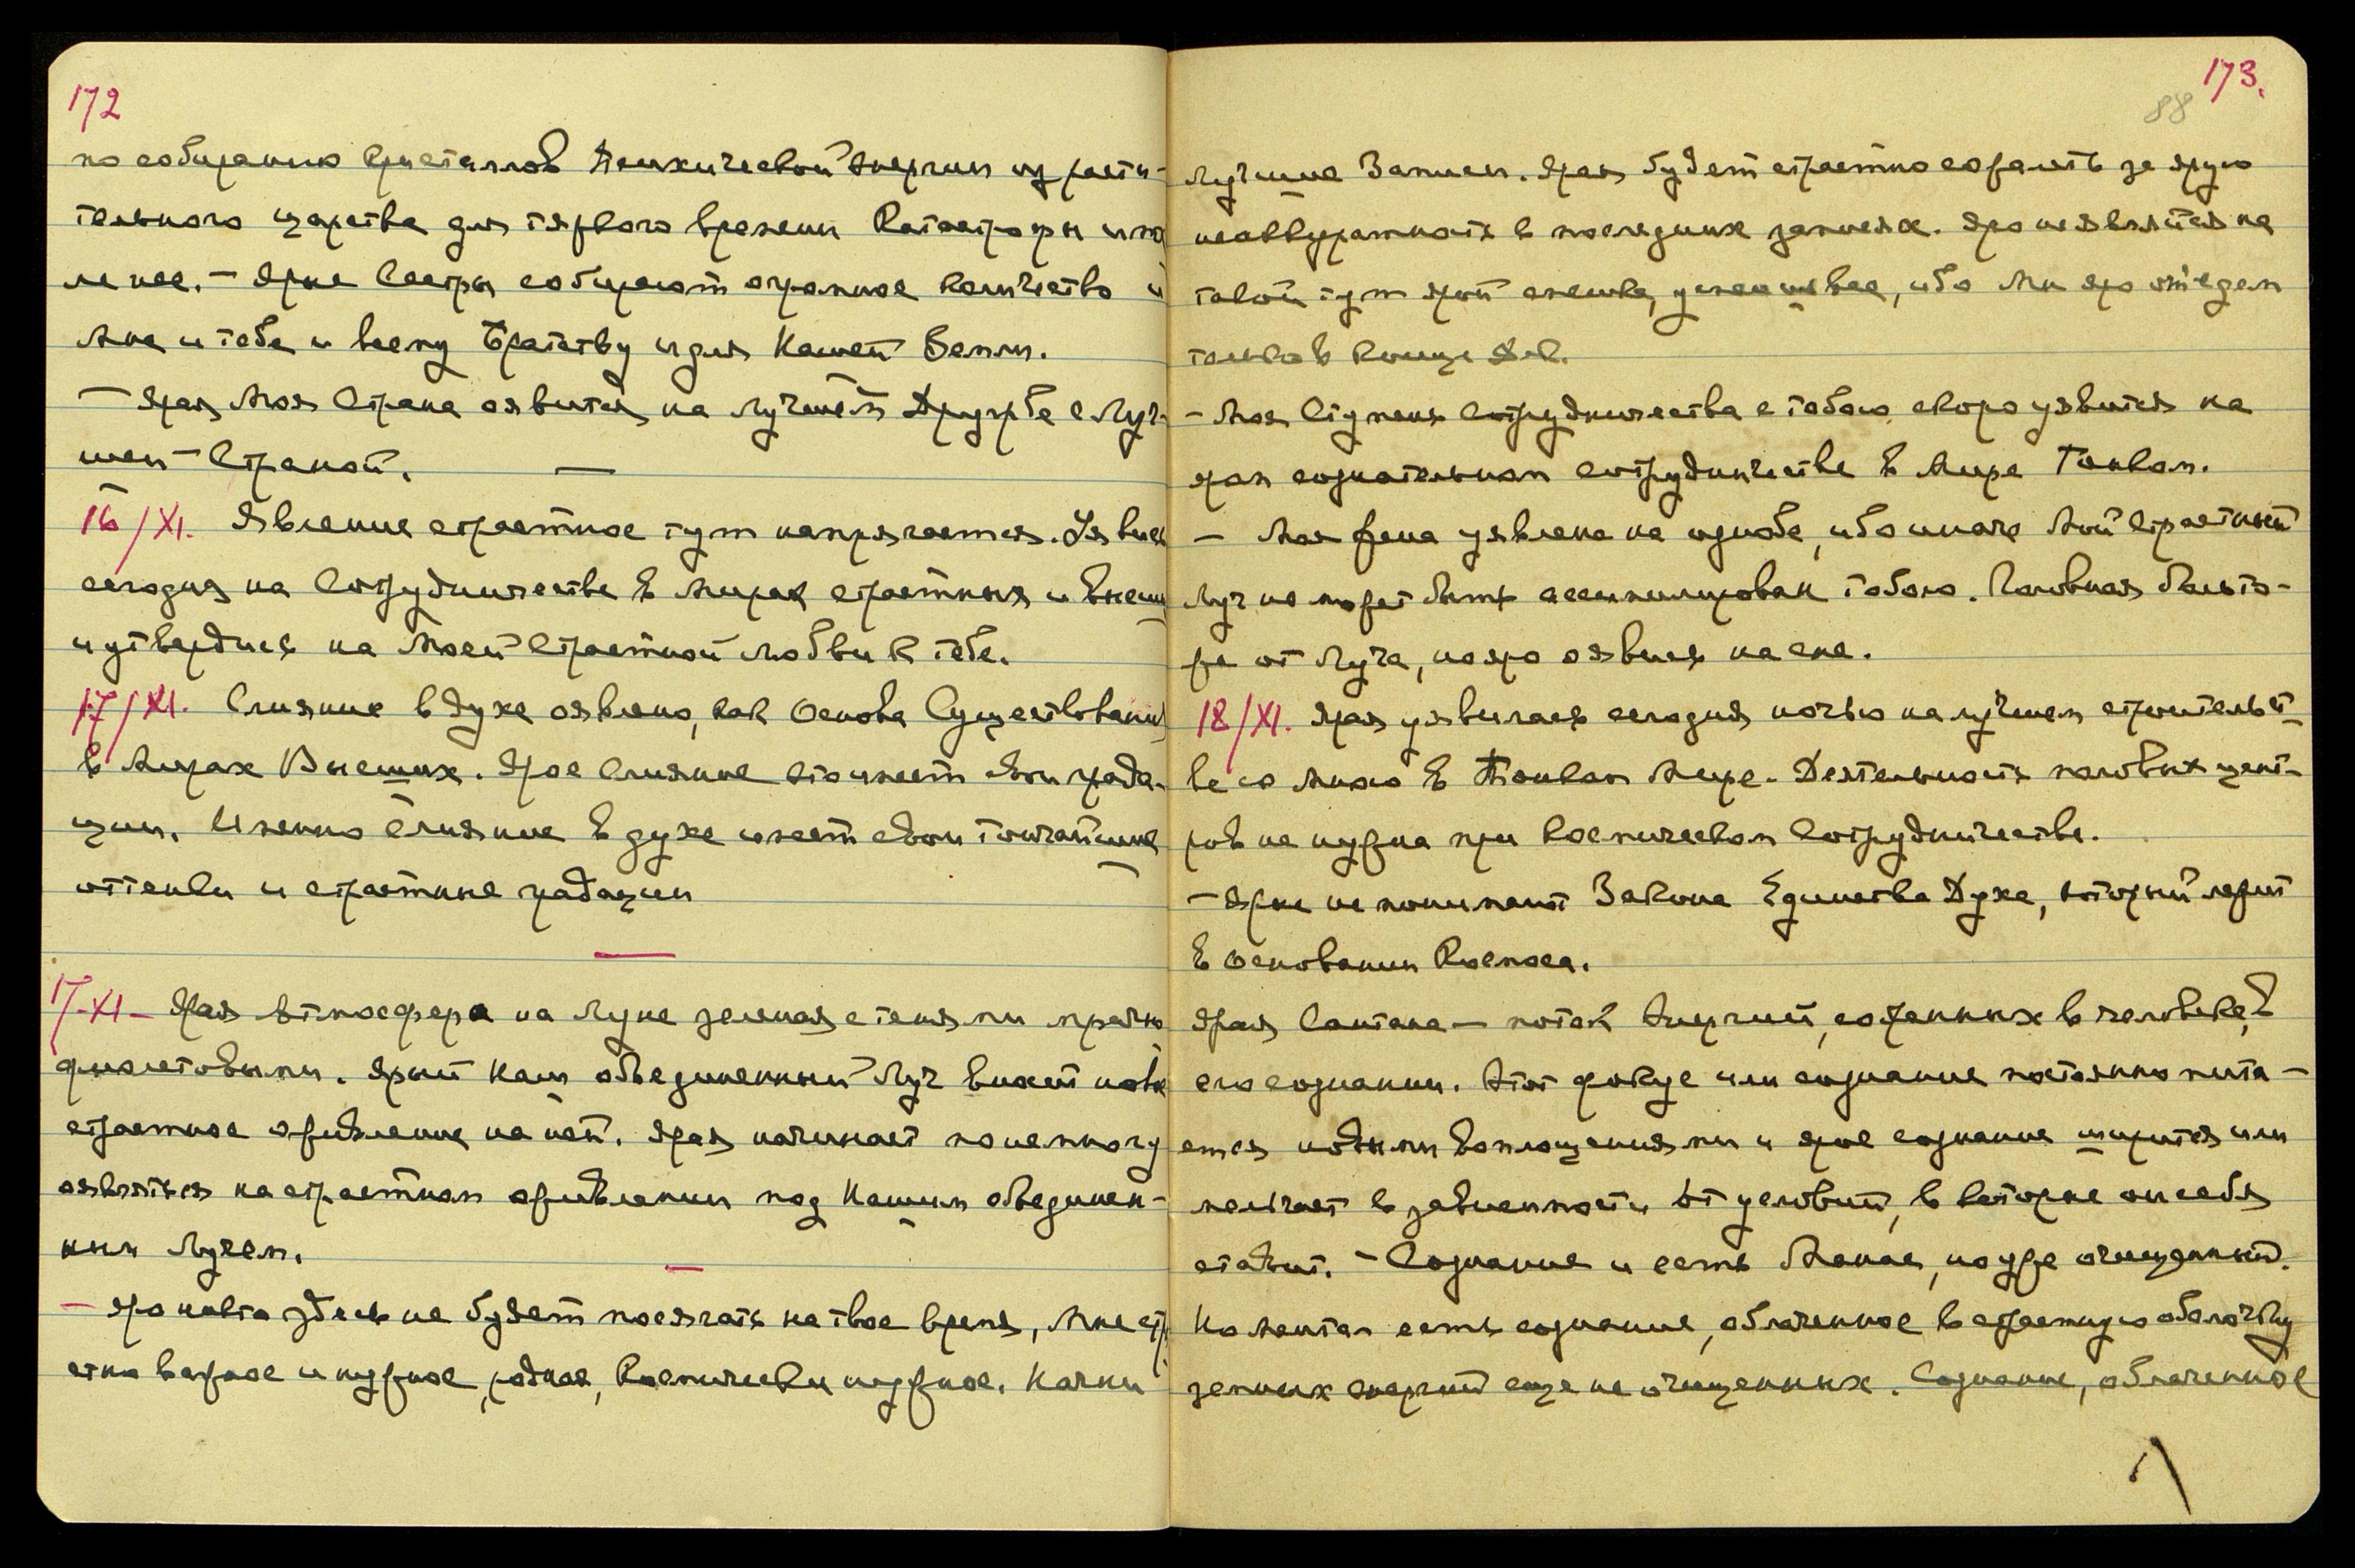 172
по собиранию Кристаллов Психической Энергии из расти-
тельного царства для тяжкого времени Катастрофы и по-
сле нее. — Ярые Сестры собирают огромное количество и
Мне и тебе и всему Братству и для Нашей Земли.
— Ярая Моя Страна оявится на лучшей Дружбе с Луч-
шей Страной.
16/XI. Явление страстное тут напрягается. Уявись
сегодня на Сотрудничестве в Мирах страстных и Высших
и утвердись на Моей Страстной любви к тебе.
17/XI. Слияние в духе оявлено, как Основа Существования
в Мирах Высших. Ярое слияние это имеет свои града-
ции. Именно слияние в духе имеет свои тончайшие
оттенки и страстные градации
17-XI — Ярая Атмосфера на Луне зеленая с тенями
фиолетовыми. Ярый Наш объединенный Луч вносит новое
страстное оживление на ней. Ярая начинает понемногу
оявляться на страстном оживлении под Нашим объединен-
ным Лучем.
— Яро никто здесь не будет посягать на твое время, Мне
важное и нужное, родная, Космически нужное. Начни
173.
88
лучшие Записи. Ярая будет страстно сожалеть за ярую
неаккуратность в последних записях. Яро не являйся на
такой тут ярой спешке, успеешь все, ибо Мы яро отъедем
только в конце
— Моя Ступень Сотрудничества с тобою скоро уявится на
яром сознательном сотрудничестве в Мире Тонком.
— Моя Жена уявлена на ознобе, ибо иначе Мой Страстный
Луч не может быть ассимилирован тобою. Головная боль то-
же от Луча, но яро оявись на сне.
18/XI. Ярая уявилась сегодня ночью на лучшем строительст-
ве со Мною в Тонком Мире. Деятельность половых цент-
ров не нужна при Космическом Сотрудничестве.
— Ярые не понимают Закона Единства Духа, который лежит
в Основании Космоса.
Ярая Сантана — поток Энергий, собранных в человеке, в
его сознании. Этот фокус или сознание постоянно пита-
ется новыми воплощениями и ярое сознание ширится или
мельчает в зависимости от условий, в которые он себя
ставит. — Сознание и есть Манас, но уже очищенный.
Но Ментал есть сознание, облаченное в страстную оболочку
земных энергий еще не очищенных. Сознание, облаченное